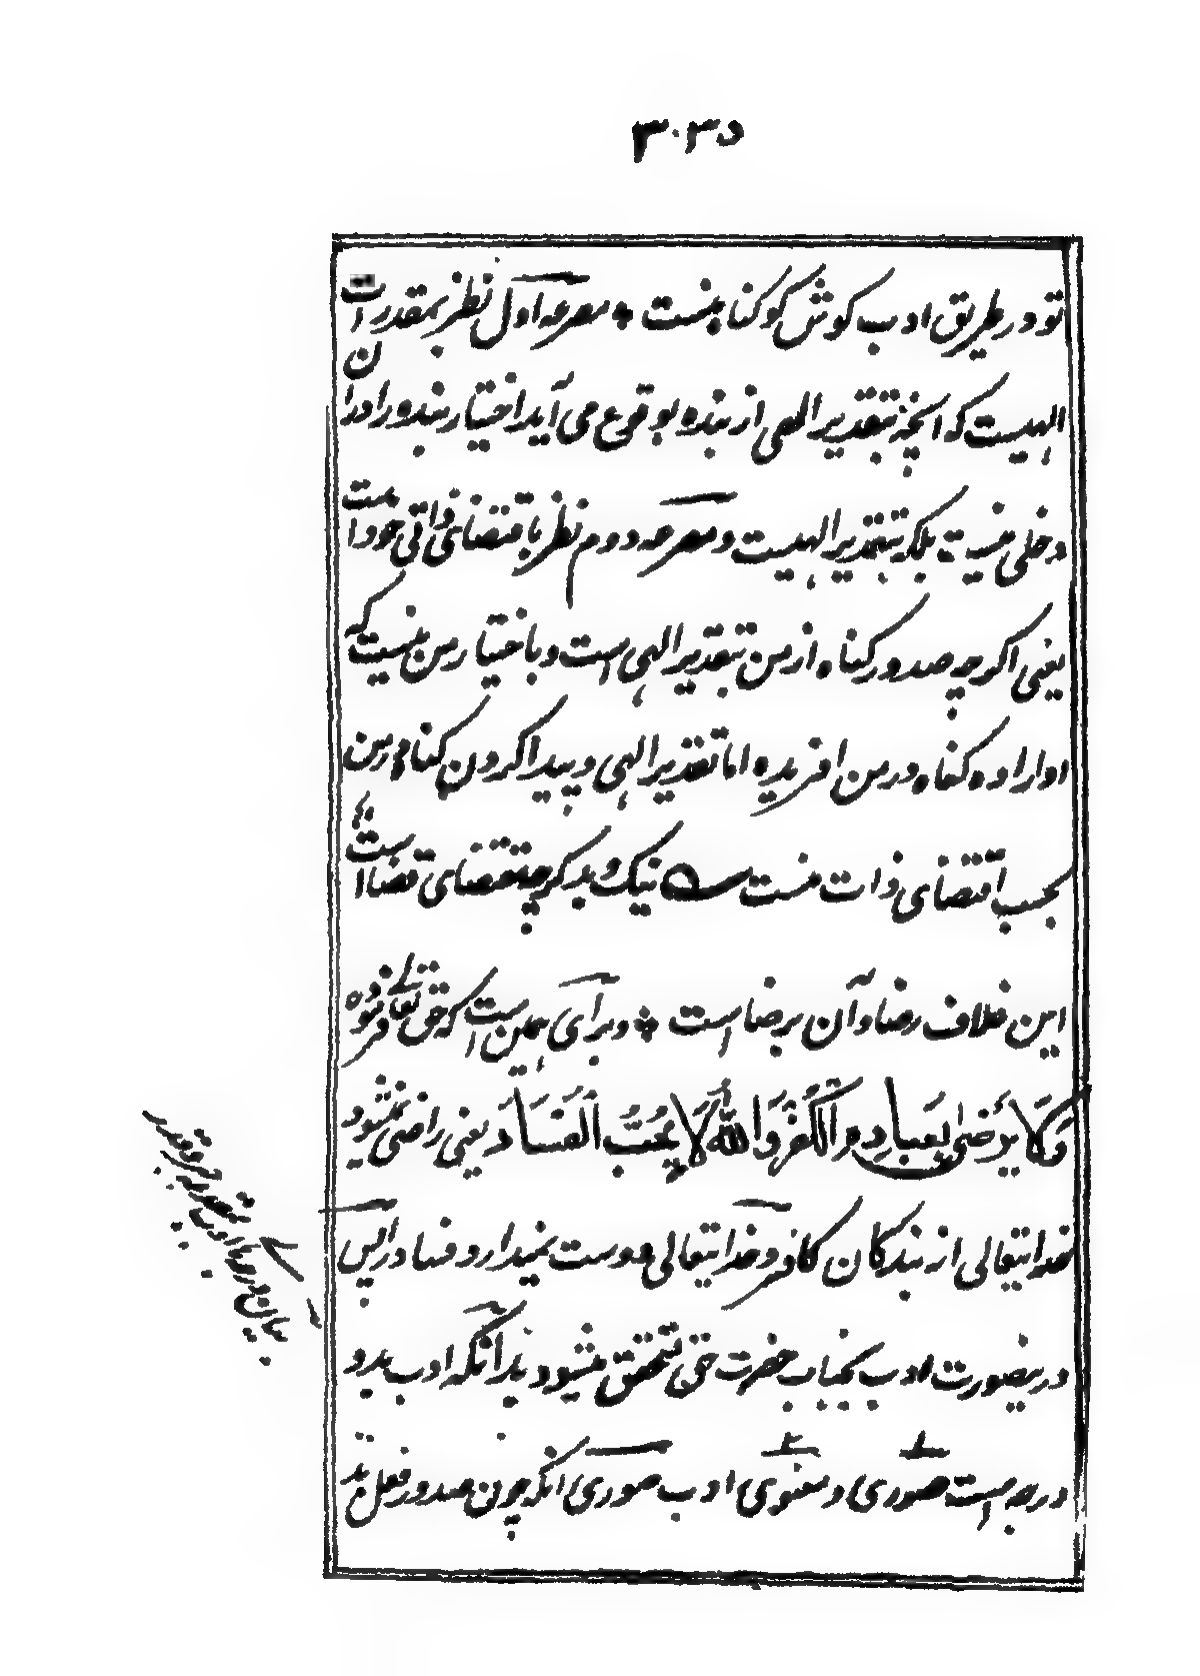 ۳۰۳۵
تو در طریق ادب کوش کو کناه منست * مصرعه اول نظر بمقدرات
الهیست که انچه بتقدیر الهی از بنده بوقوع می آید اختیار بنده در ادران
دخلی نیست بلکه بتقدیر الهیست و مصرعه دوم نظر باقتضای ذاتی خود است
یعنی اکرچه صدور کناه از من بتقدیر الهی است و باختیار من نیست که
او اراده کناه در من افریده اما تقدیر الهی و پیدا کردن کناه در من
بحسب اقتضای ذات منست نیک و بد کرچه مقتضای قضا است
این خلاف رضا و آن برضا است * و برای همین است که حق تعالی فرموده
وَلَا يَرْضَى لِعِبَادِهِ الْكُفْرَ وَاللهُ لَا يُحِبُّ الْفَسَادَ یعنی راضی نمیشود
خدایتعالی از بندکان کافر و خدایتعالی دوست نمیدارد فساد را پس
درینصورت ادب بجناب حضرت حق متحقق میشود بدانکه ادب بدو
درجه است صوری و معنوی ادب صوری انکه چون صدور فعل بد
بیان درجات ادب